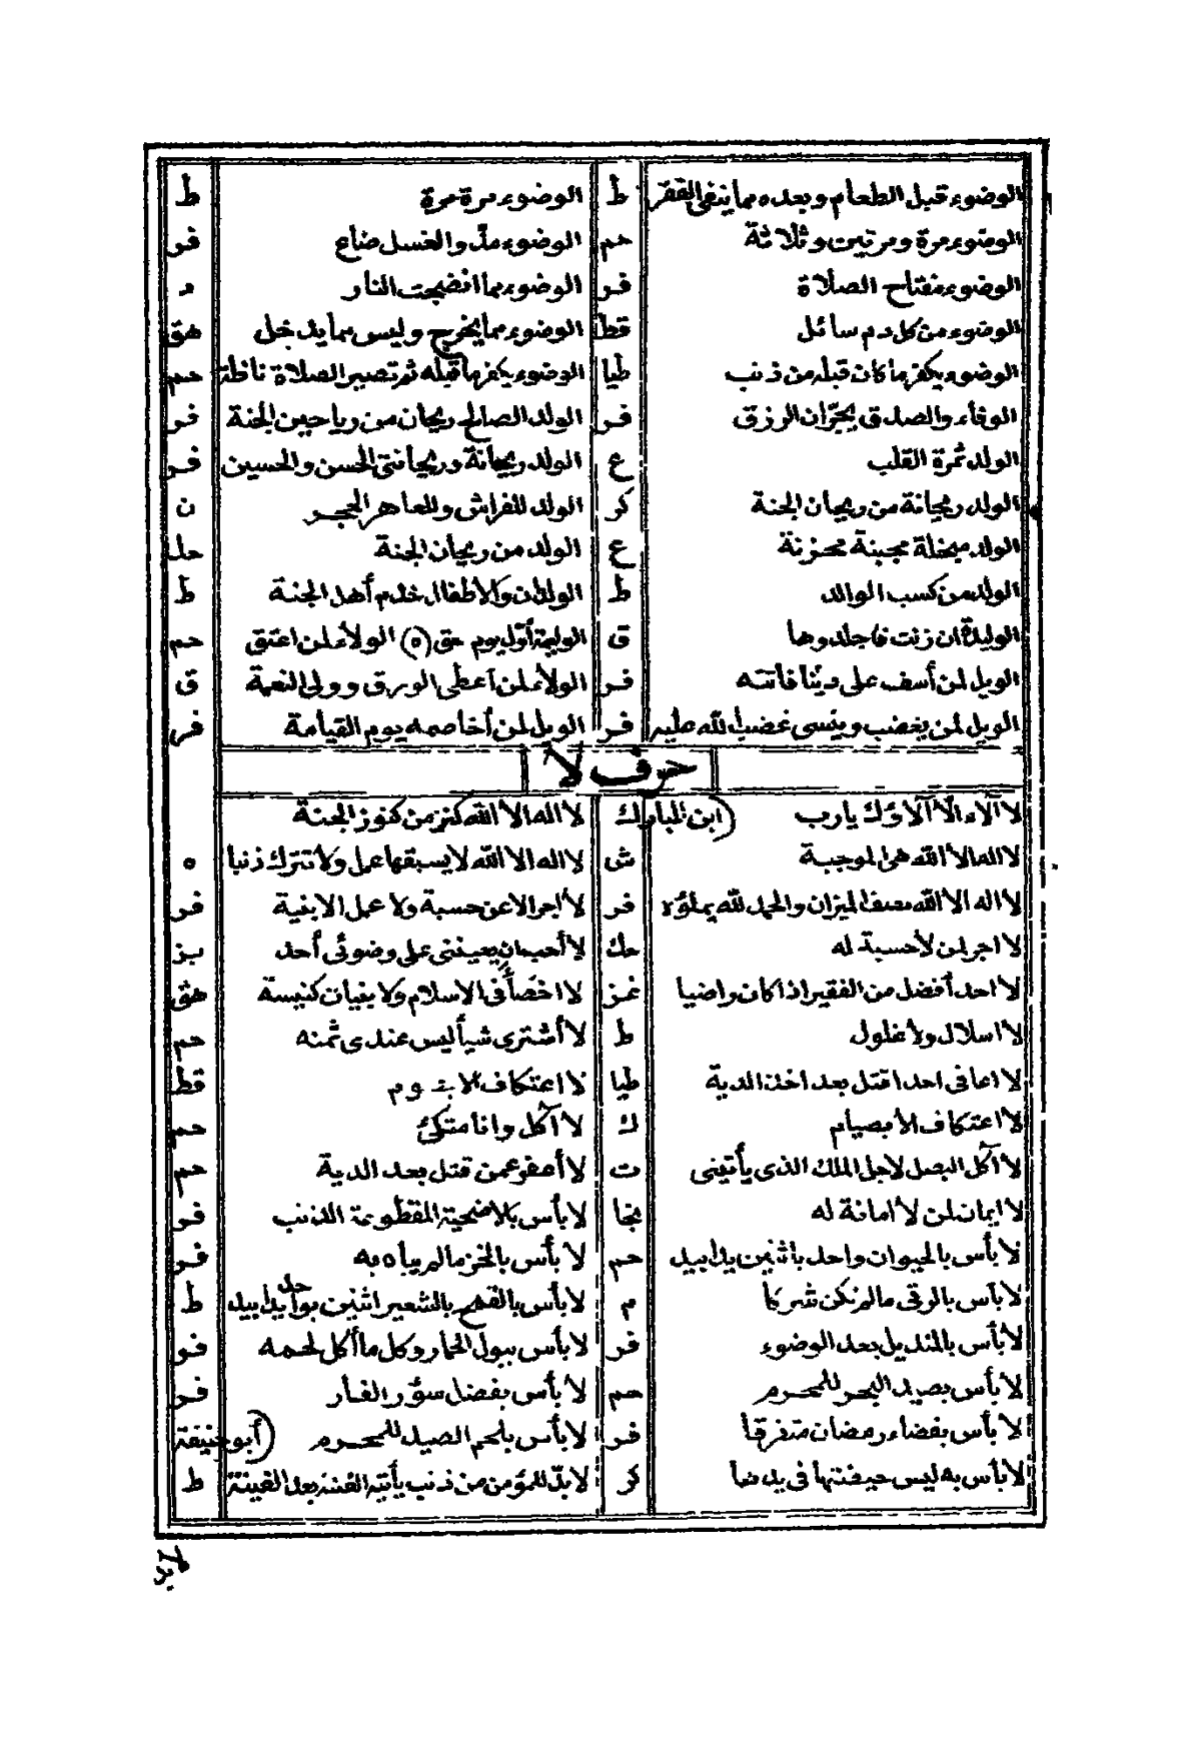 الوضوء قبل الطعام وبعده مما ينفى الفقر ط الوضوء مرة مرة ط
الوضوء مرة ومرتين وثلاثة حم الوضوء مدّ والغسل صاع فر
الوضوء مفتاح الصلاة فر الوضوء مما انضجت النار د
الوضوء من كل دم سائل قط الوضوء مما يخرج وليس مما يدخل هق
الوضوء يكفر ما كان قبله من ذنب طيا الوضوء يكفر ما قبله ثم تصير الصلاة نافلة حم
الوفاء والصدق يجرّان الرزق فر الولد الصالح ريحان من رياحين الجنة فر
الولد ثمرة القلب ع الولد ريحانة وريحانتى الحسن والحسين فر
الولد ريحانة من ريحان الجنة كر الولد للفراش وللعاهر الحجر ن
الولد مبخلة مجبنة محزنة ع الولد من ريحان الجنة حل
الولد من كسب الوالد ط الولدان والاطفال خدم أهل الجنة ط
الوليدة ان زنت فاجلدوها ق الوليمة أوّل يوم حق (ه) الولاء لمن اعتق حم
الويل لمن أسف على دينا فاتته فر الولاء لمن أعطى الورق وولى النعمة ق
الويل لمن يغضب وينسى غضب الله عليه فر الويل لمن أخاصمه يوم القيامة فر
حرف لا
لا آلاء الّا آلاؤك يارب (ابن المبارك لا اله الا الله كنز من كنوز الجنة
لا اله الا الله هى الموجبة ش لا اله الا الله لا يسبقها عمل ولا تترك ذنبا ه
لا اله الا الله نصف الميزان والحمد لله يملؤه فر لا أجر الا عن حسبة ولا عمل الا بنية فر
لا اجر لمن لا حسبة له حك لا أحب من يعيننى على وضوئى أحد بز
لا احد أفضل من الفقير اذا كان راضيا عز لا اخصأ فى الاسلام ولا بنيات كنيسة هق
لا اسلال ولا غلول ط لا أشترى شيأ ليس عندى ثمنه حم
لا اعافى احدا قتل بعد اخذ الدية طيا لا اعتكاف الا بصوم قط
لا اعتكاف الا بصيام ك لا آكل وانا متكئ حم
لا آكل البصل لاجل الملك الذى يأتينى ت لا أعفو عمن قتل بعد الدية حم
لا ايمان لمن لا امانة له نجا لا بأس بالاضحية المقطوعة الذنب فر
لا بأس بالحيوان واحد باثنين يدا بيد حم لا بأس بالخز مالم يباه به فر
لا بأس بالرقى مالم تكن شركا م لا بأس بالقمح بالشعير اثنين بواحد يدا بيد ط
لا بأس بالمنديل بعد الوضوء فر لا بأس ببول الحمار وكل ما أكل لحمه فر
لا بأس بصيد البحر للمحرم حم لا بأس بفضل سؤر الفأر فر
لا بأس بقضاء رمضان متفرقا فر لا بأس بلحم الصيد للمحرم (أبو حنيفة
لا بأس به ليس حيضتها فى يدها كر لا بدّ للمؤمن من ذنب يأتيه الفينة بعد الفينة ط